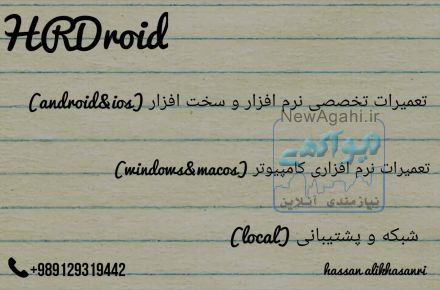 HRDroid
تعمیرات تخصصی نرم افزار و سخت افزار (android&ios)
NewAgahi.ir
نیو آگهی
تعمیرات نرم افزاری کامپیوتر (windows&macos)
نیازمندی آنلاین
شبکه و پشتیبانی (local)
+989129319442
hassan alikhasanri